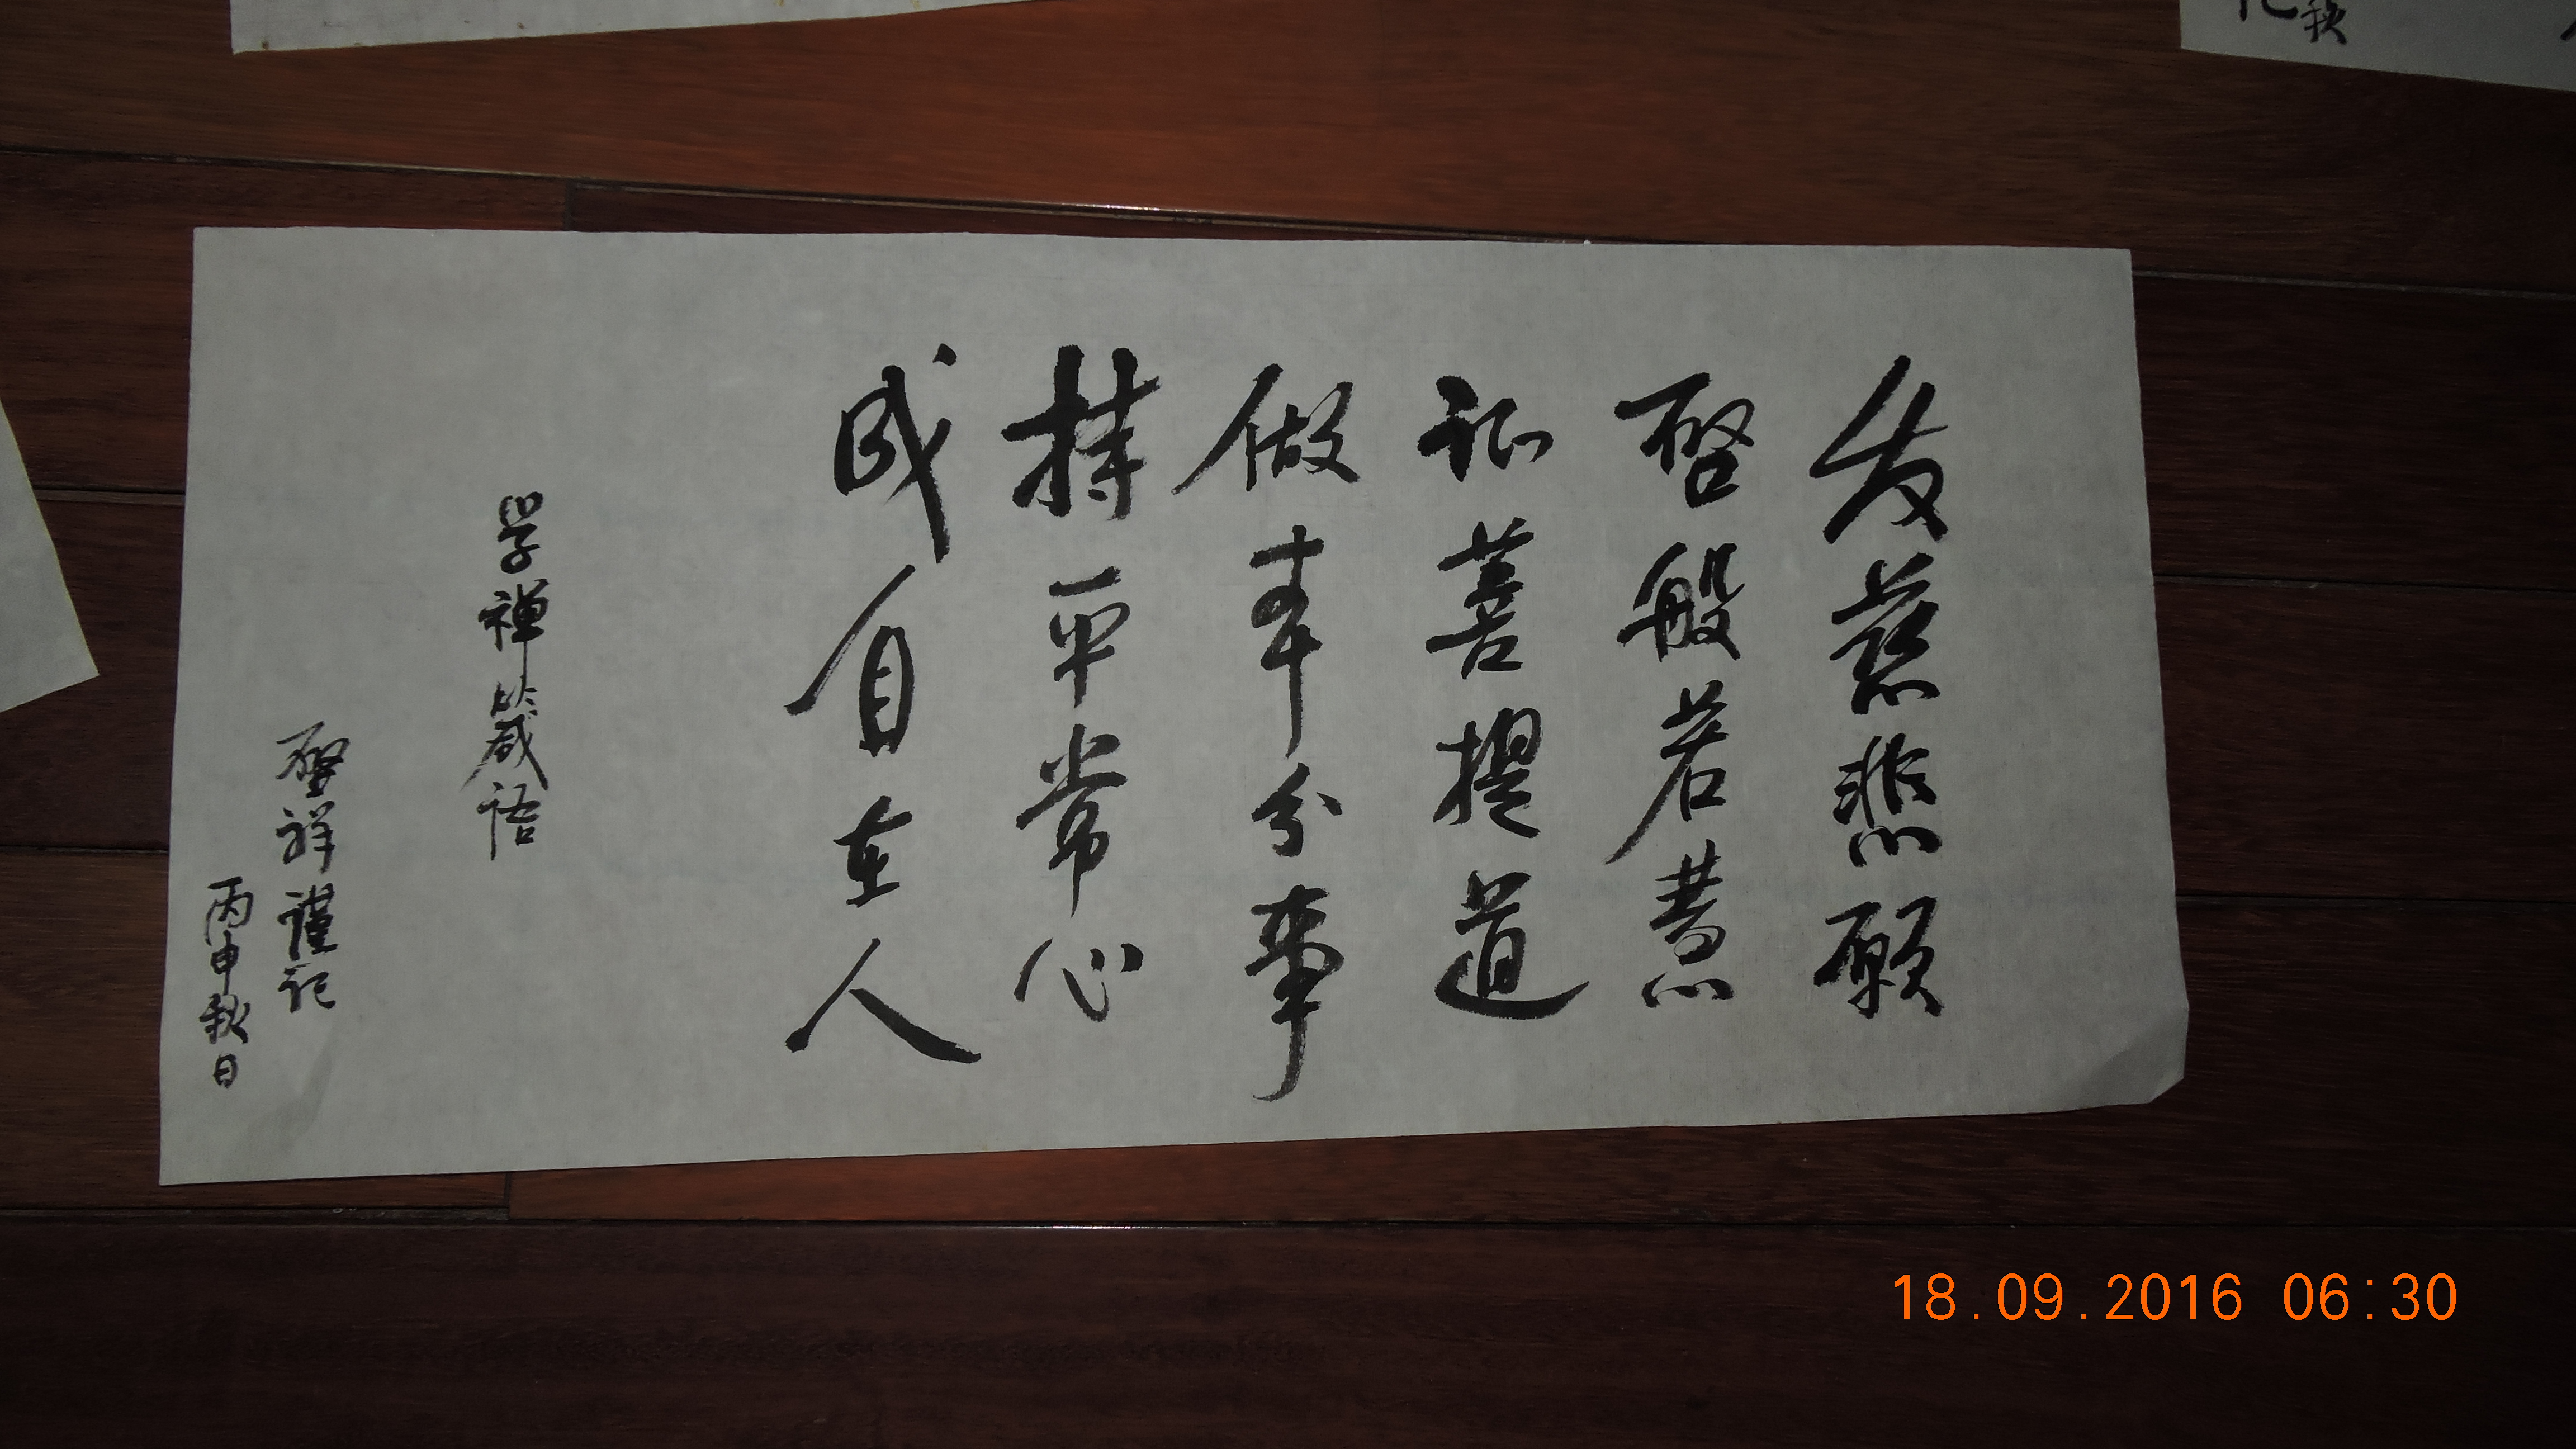 发慈悲願
啓般若慧
证菩提道
做本分事
持平常心
成自在人
學禅箴语
啓祥谨记
丙申秋日
秋
18.09.2016 06:30